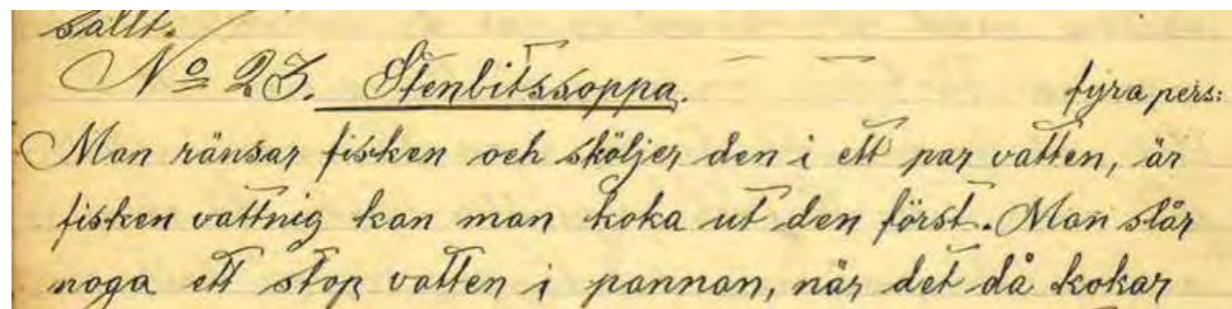 sallt.
No 23. Stenbitssoppa.
fyra pers:
Man ränsar fisken och sköljer den i ett par vatten, är
fisken vattnig kan man koka ut den först. Man slår
noga ett stop vatten i pannan, när det då kokar